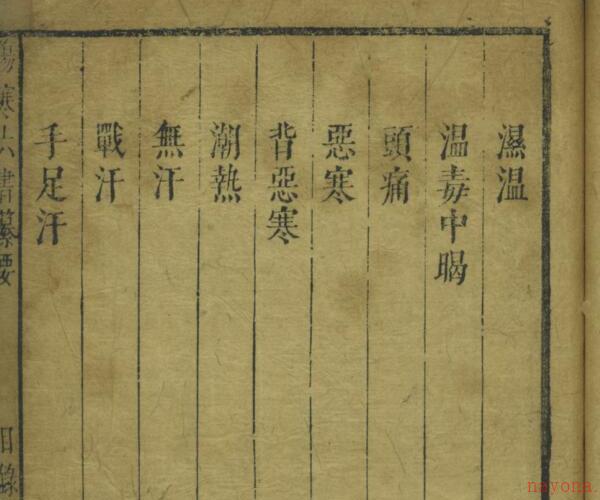 濕温
温毒中暍
頭痛
惡寒
背惡寒
潮熱
無汗
戰汗
手足汗
傷寒六書纂要
目錄
nayona